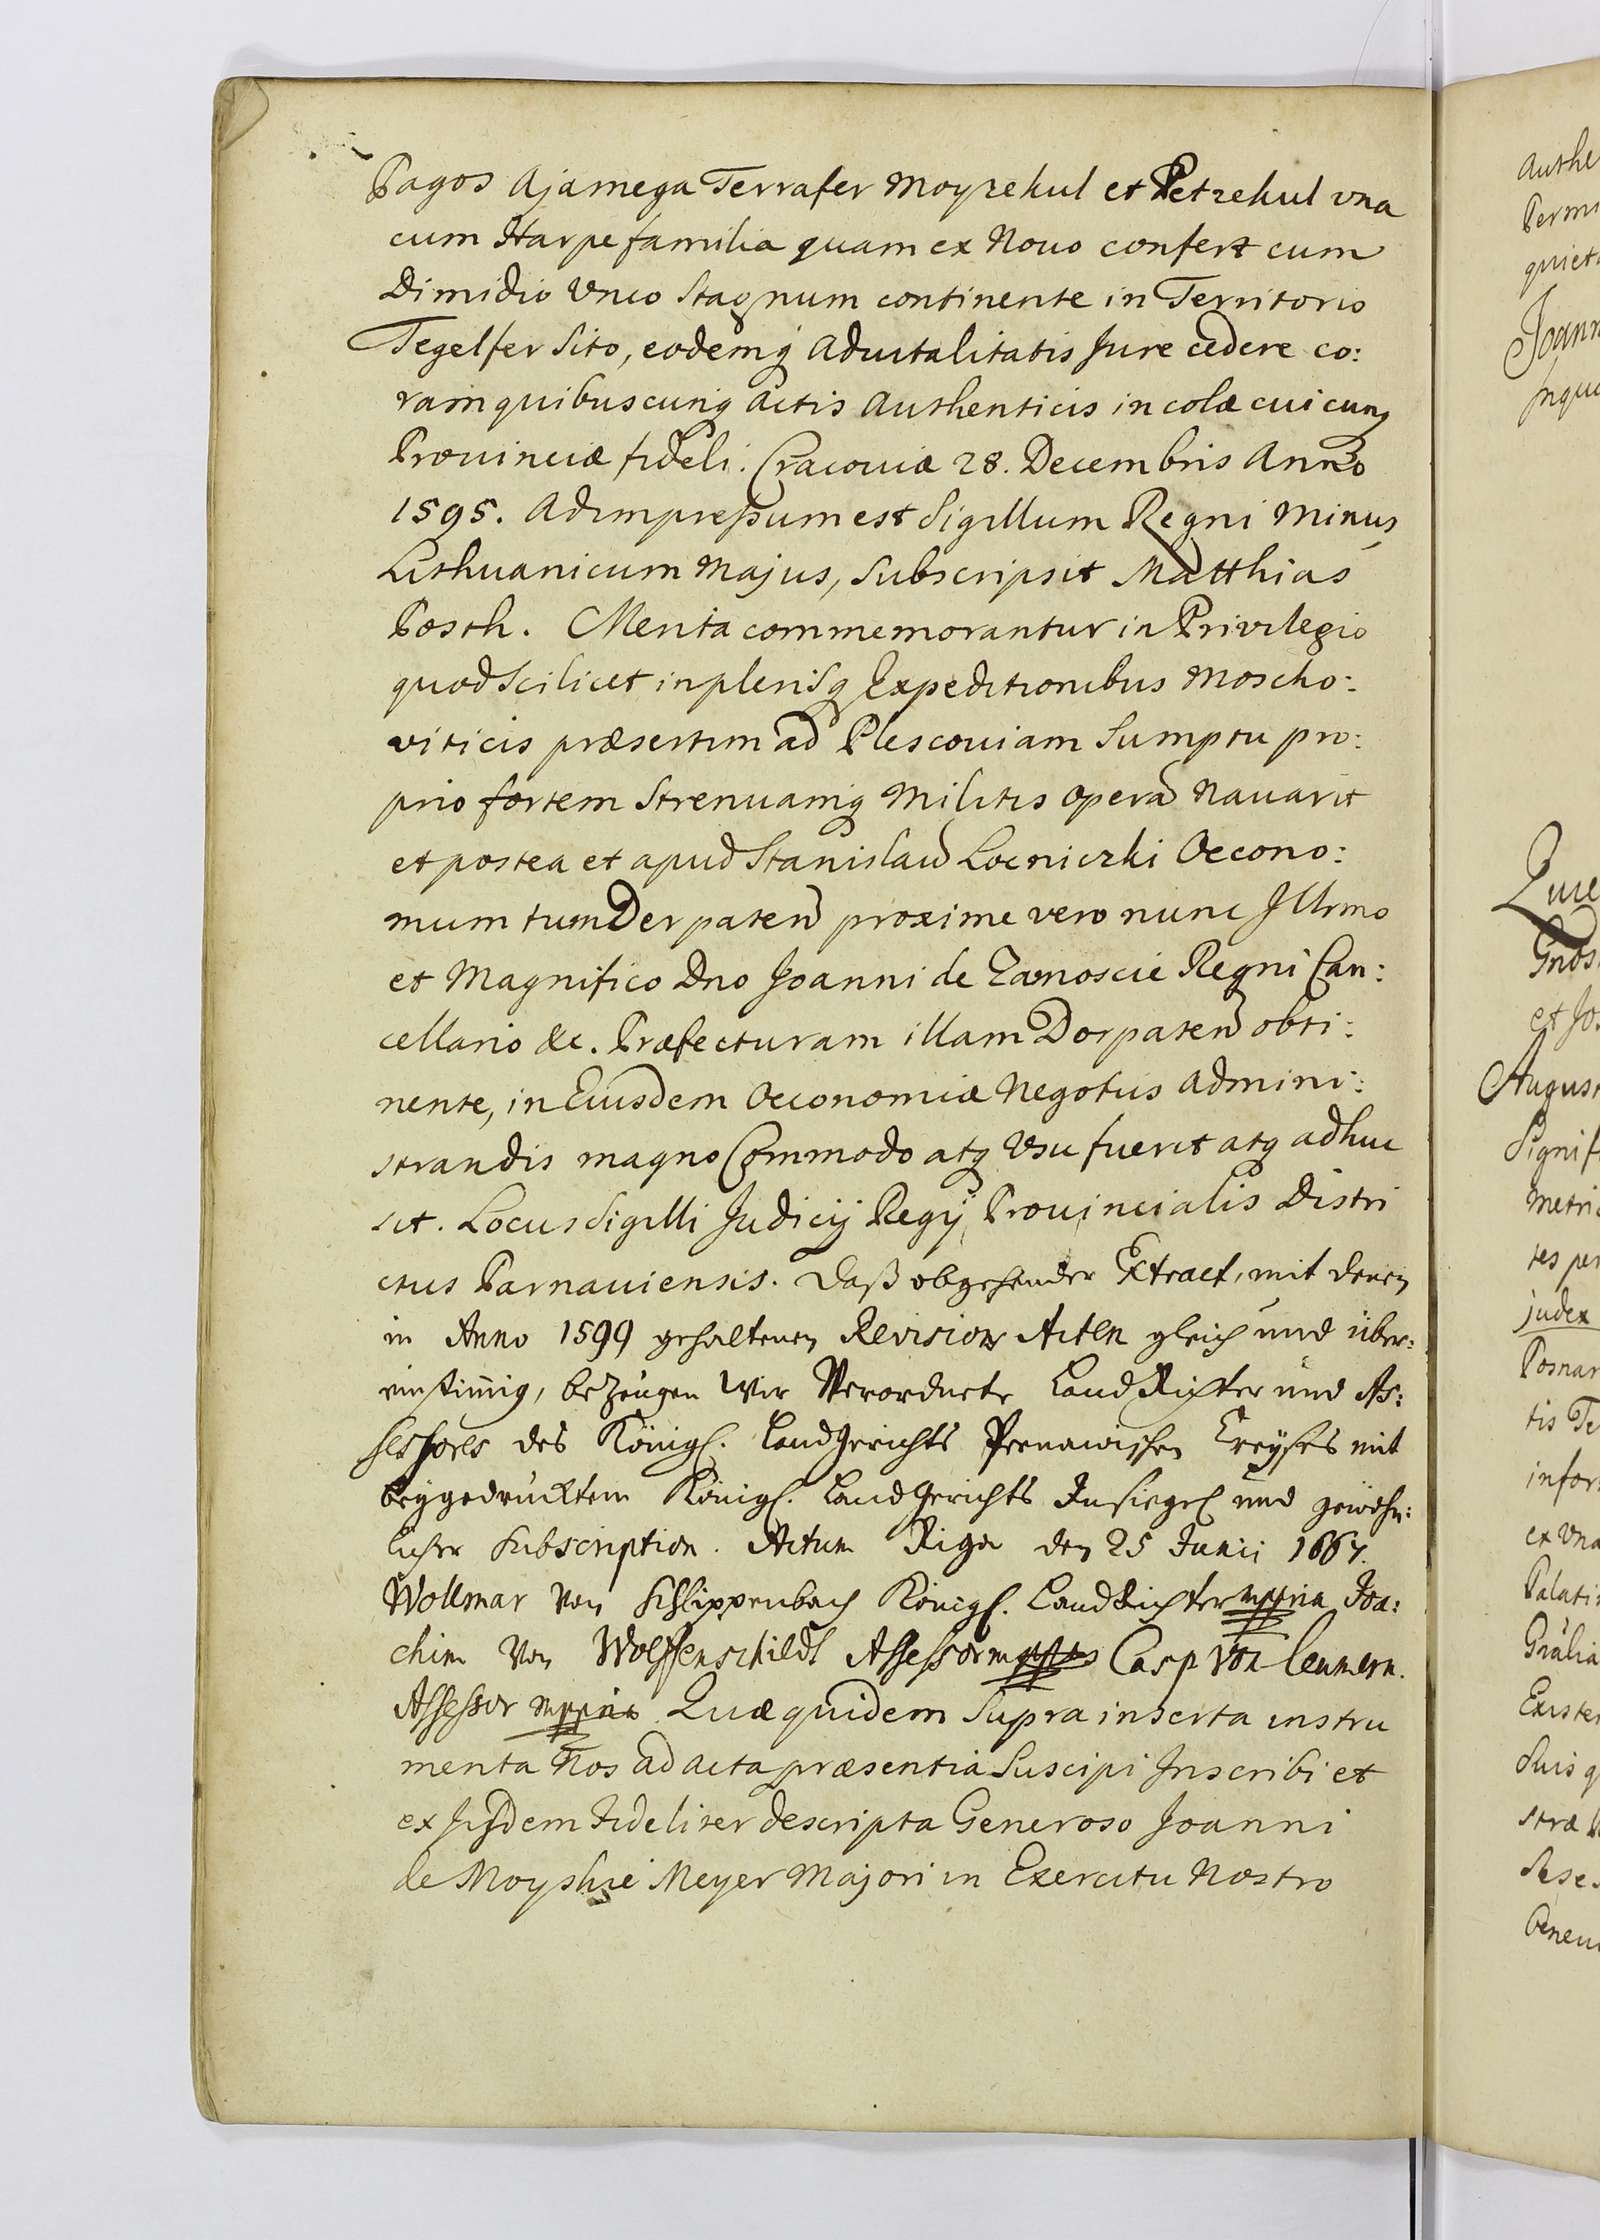 Pagos Ajamega Terrafer Moyzekul et Petzekul vna
cum Harpe familia quam ex Nouo confert cum
Dimidio Vnco Stagnum continente in Territorio
Tegelfer Sito, eodemq Aduitalitatis Jure cedere co:
ram quibuscunq actis Authenticis incolæ cuicunq
Prouinciæ fideli. Cracouiæ 28. Decembris Anno
1595. Adimpressum est Sigillum Regni Minus
Lithuanicum Majus, Subscripsit Matthias
Posth. Merita commemorantur in Privilegio
quod Scilicet in plerisq Expeditionibus Moscho:
viticis præsertim ad Plescouiam Sumptu pro:
prio fortem Strenuamq Militis opera Nauarit
et postea et apud Stanislau Locniczki Oecono:
mum tum Derpaten proxime vero nunc Jllrmo
et Magnifico Dno Joanni de Zamoscie Regni Can:
cellario &c. Præfecturam illam Dorpaten obti:
nente, in Eiusdem Oeconomiæ Negotijs Admini:
strandis magno Commodo atq Vsu fuerit atq adhuc
sit. Locus Sigilli Judicij Regij Prouincialis Distri
ctus Parnauiensis. Daß obgehender Extract, mit denen
in Anno 1599 gehaltenen Revisions Acten gleich und über:
einstimig, bezeugen Wir Verordnete Land Richter und As:
sessores des Königl. Landgerichts Pernawischen Creyses mit
beygedrücktem Königl. Landgerichts Insiegel und gewöhn:
licher Subscription. Actum Riga den 25 Junii 1667.
Wollmar Von Schlippenbach Königl. Land Richter mppria Joa:
chim Von Wolffenschildt Assessor mppria Casp Von Ceumern.
Assessor mppria Quæ quidem Supra inserta instru
menta Nos ad acta præsentia Suscipi Jnscribi et
ex Jisdem Fideliter descripta Generoso Joanni
de Moyshie Meyer Majori in Exercitu Nostro